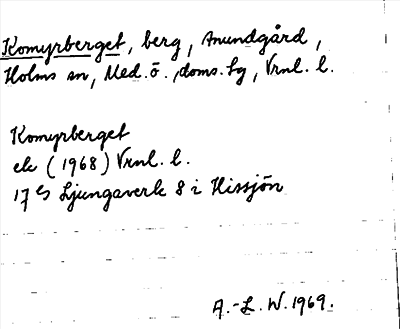 Komyrberget, berg, Anundgård,
Holms sn, Med. ö. doms. sg, Vrnl. l.
Komyrberget
ek (1968) Vrnl. l.
17 Ljungaverk 8 i Hissjön
A.-L. W. 1969.